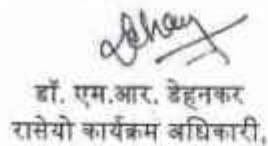 डॉ. एम.आर. डेहनकर
रासेयो कार्यक्रम अधिकारी,